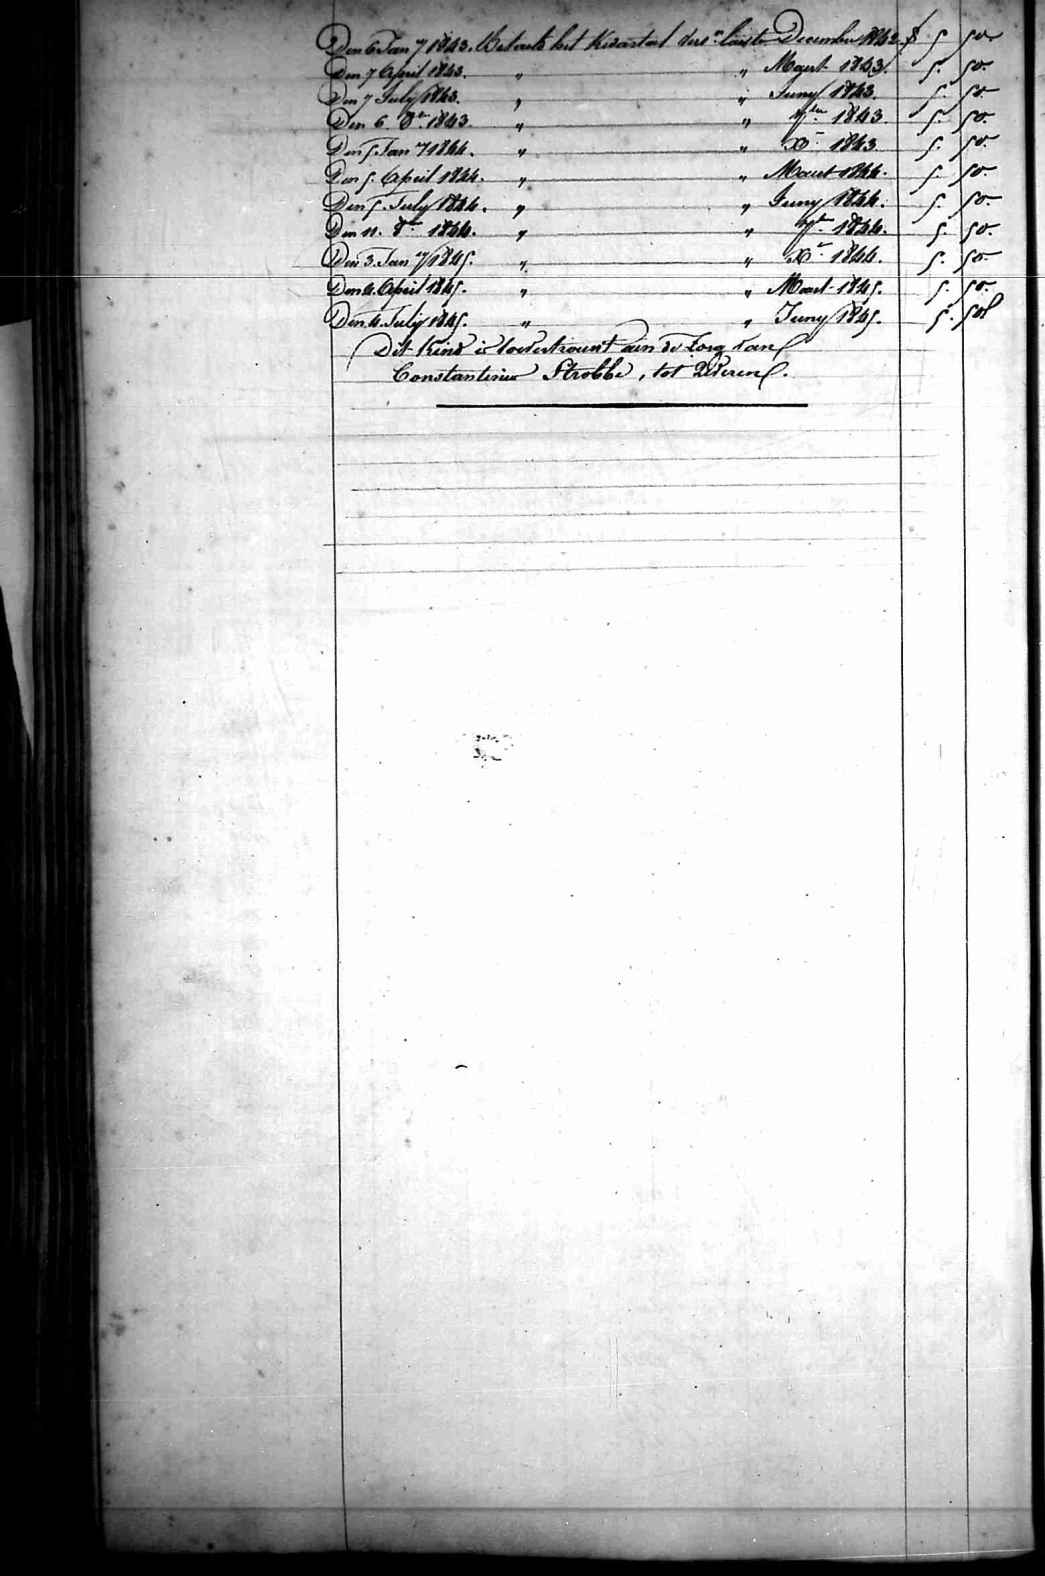 Den 6 Jan.y 1843. Betaelt het Kwartael vers.n laeste December 1842. f 5 50
Den 7 April 1843. " " Maert 1843. 5. 50.
Den 7 July 1843. " " Juny 1843 5. 50
Den 6. 8re 1843. " " 7bre 1843. 5. 50.
Den 5. Jan.y 1844. " " Xbr 1843 5. 50.
Den 5. April 1844. " " Maert 1844. 5. 50.
Den 5. July 1844. " " Juny 1844. 5. 50.
Den 11. 8re 1844. " " 7re 1844. 5. 50.
Den 3. Jan.y 1845. " " Xr 1844. 5. 50
Den 4. April 1845. " " Maert 1845. 5. 50.
Den 4. July 1845. " " Juny 1845. 5. 50
Dit Kind is toevertrouwt aen de Zorg van
Constantinus Strobbe, tot